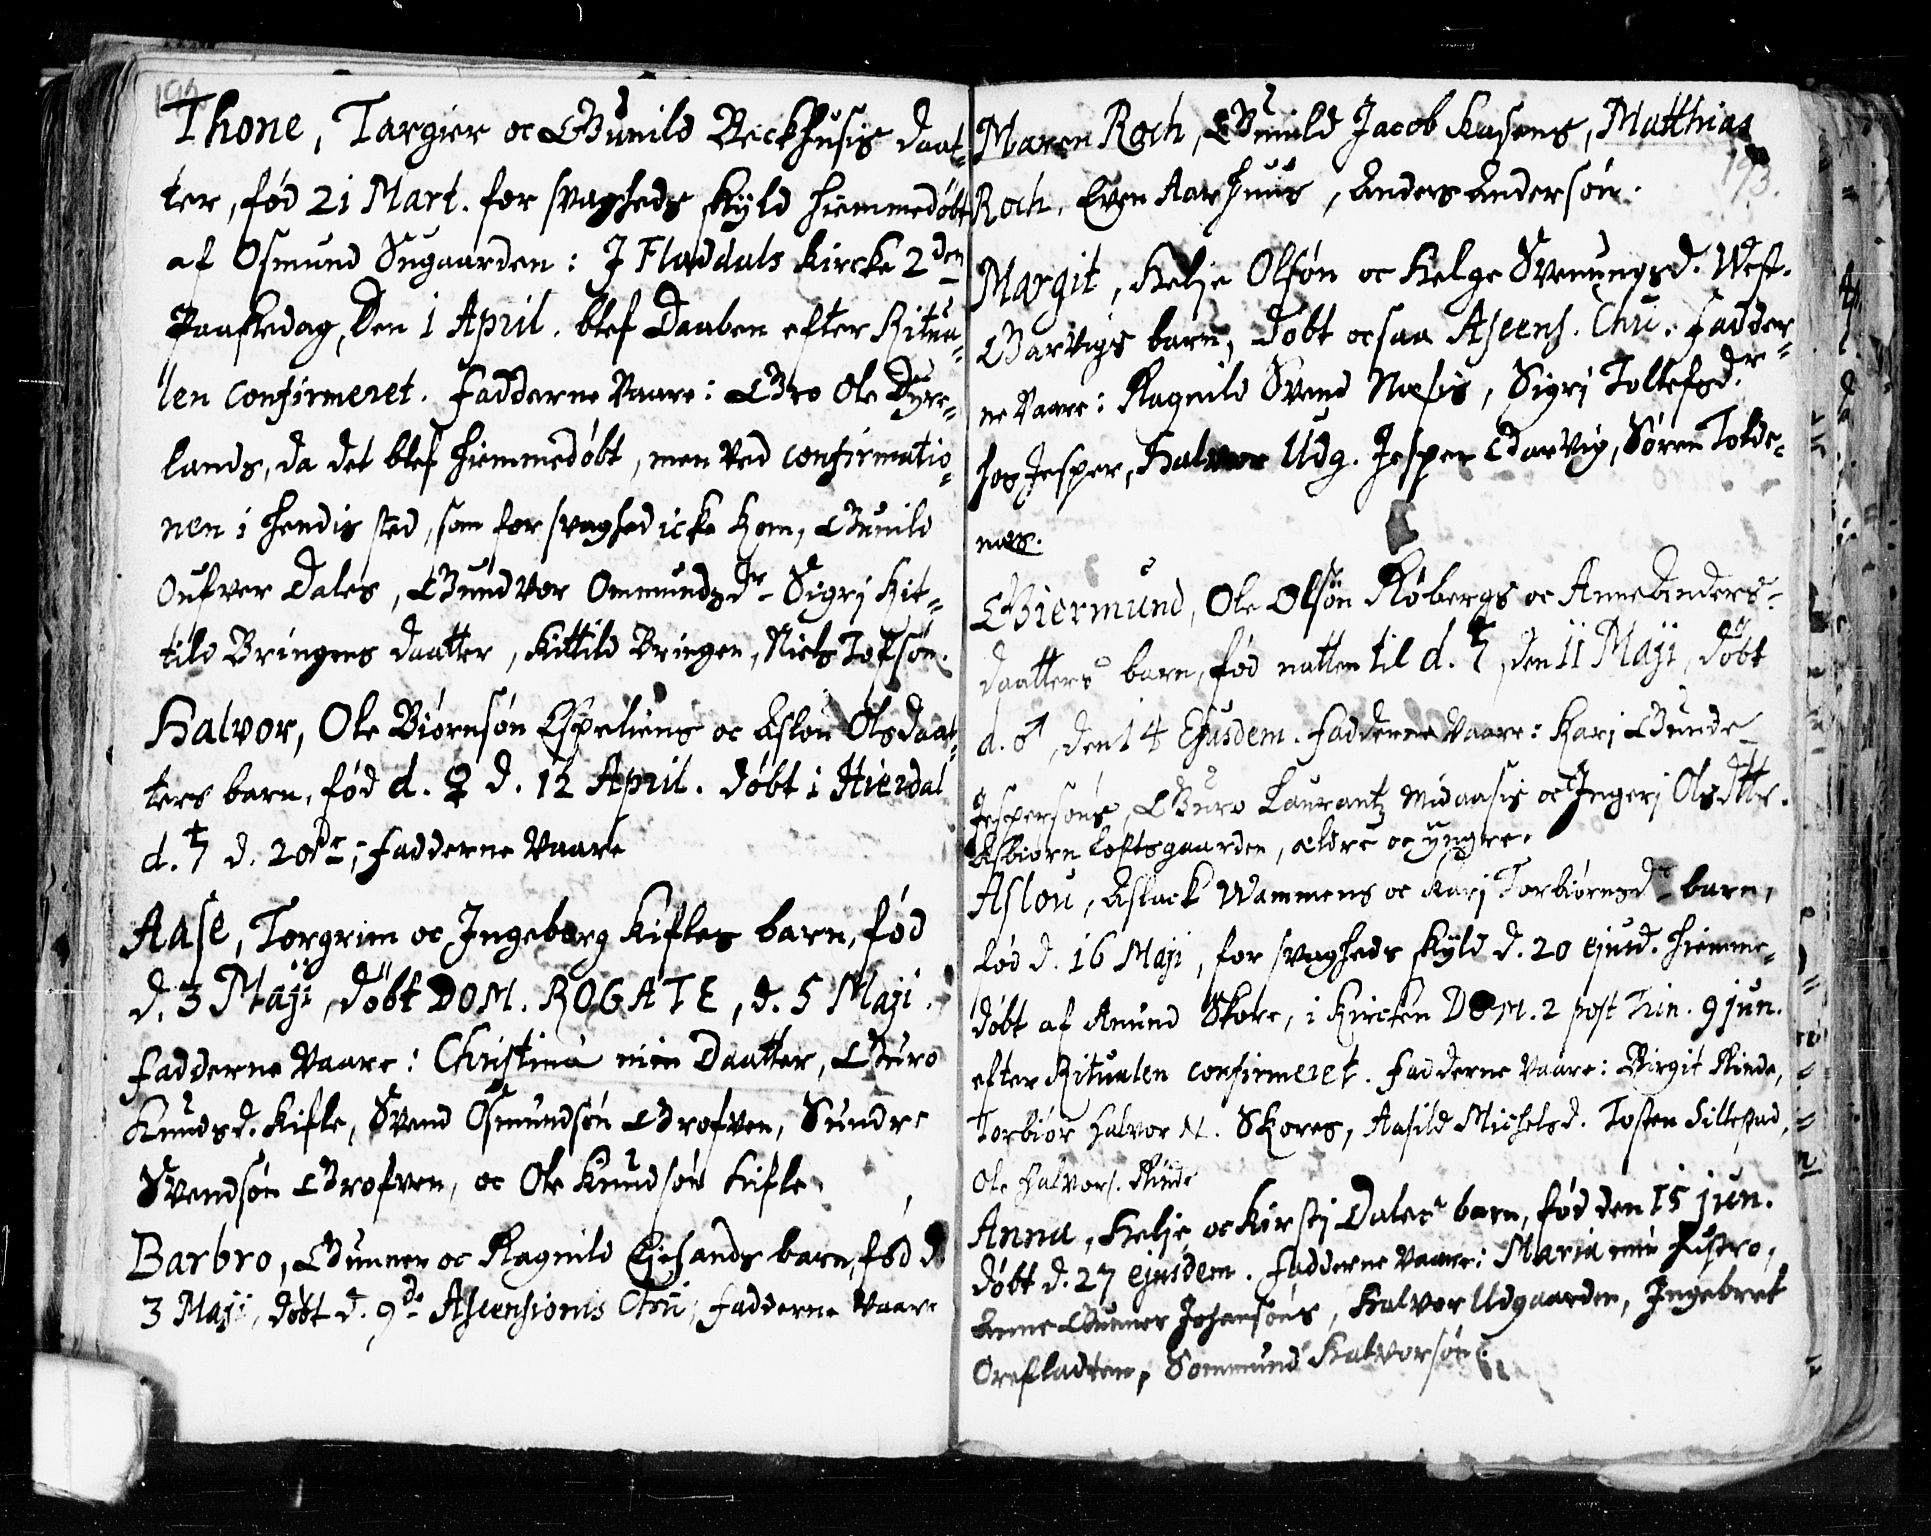 192
Thone, Targier oc Gunild Beckhusis daat-
ter, fød 21 Mart. for svagheds skyld hiemmedøbt
af Osmund Sugaarden: I Fladdals Kircke 2den
Paaskedag, Den 1 April. blef Daaben efter Ritua-
len confirmeret. Fadderne Vaare: Gro Ole Dyre-
lands, da det blef hiemmedøbt, men ved confirmatio-
nen i hendis sted, som for svaghed icke kom, Gunild
Oufver Dales, Gundvor Ommundsdr Sigrj Kit-
tild Bringens daatter, Kittild Bringen, Niels Tofsøn.
Halvor, Ole Biørnsøn Espeliens oc Aslou Olsdaat-
ters barn, fød d. ♀ d. 12 April. døbt i Hierdal
d. ♄ d. 20de; Fadderne Vaare
Aase, Torgrim oc Ingeborg Kifles barn, fød
d. 3 Maji, døbt DOM. ROGATE, d. 5 Maji.
Fadderne Vaare: Christina min Daatter, Guro
Knudsd. Kifle, Svend Osmundsøn Grofven, Sundre
Svendsøn Grofven, oc Ole Knudsøn Kifle.
Barbro, Gunner oc Ragnild Ejesands barn, fød d.
3 Maji, døbt d. 9de Ascensionis Chri; Fadderne Vaare
193.
Maren Roch, Gunild Jacob Kasens, Matthias
Roch, Even Aarhuus, Anders Andersøn.
Margit, Helje Olsøn oc Helge Svenungsd. West-
Garvigs barn, døbt ocsaa Ascens. Chri. Fadder-
ne Vaare: Ragnild Svend Næsis, Sigrj Tollefsdr
hos Jesper, Halvor Udg. Jesper Garvig, Søren Tolde-
næs.
Giermund, Ole Olsøn Røbergs oc Anne Anders-
daatters barn, fød natten til d. ♄, den 11 Maji, døbt
d. ♂, den 14 Ejusdem. Fadderne Vaare: Karj Gunde
Jespersøns, Guro Laurantz Midaasis oc Ingerj Olsdtts.
Asbiørn Loftsgaarden, ældre oc yngre.
Aslou, Aslack Wammens oc Karj Torbiørnsdr barn,
fød d. 16 Maji, for svagheds skyld d. 20 ejusd. hiemme-
døbt af Anund Skore, i Kircken DOM. 2 post Trin. 9 jun.
efter Ritualen confirmeret. Fadderne Vaare: Birgit Rinde,
Torbiør Halvor N. Skores, Aasild Michelsd. Tosten Lillestad,
Ole Halvors. Rinde
Anna, Helje oc Kirstj Dales barn, fød den 15 jun.
døbt d. 27 ejusdem. Fadderne Vaare: Maria min Hustro,
Anne Gunner Johansøns, Halvor Udgaarden, Ingebret
Orefladten, Sommund Halvorsøn.